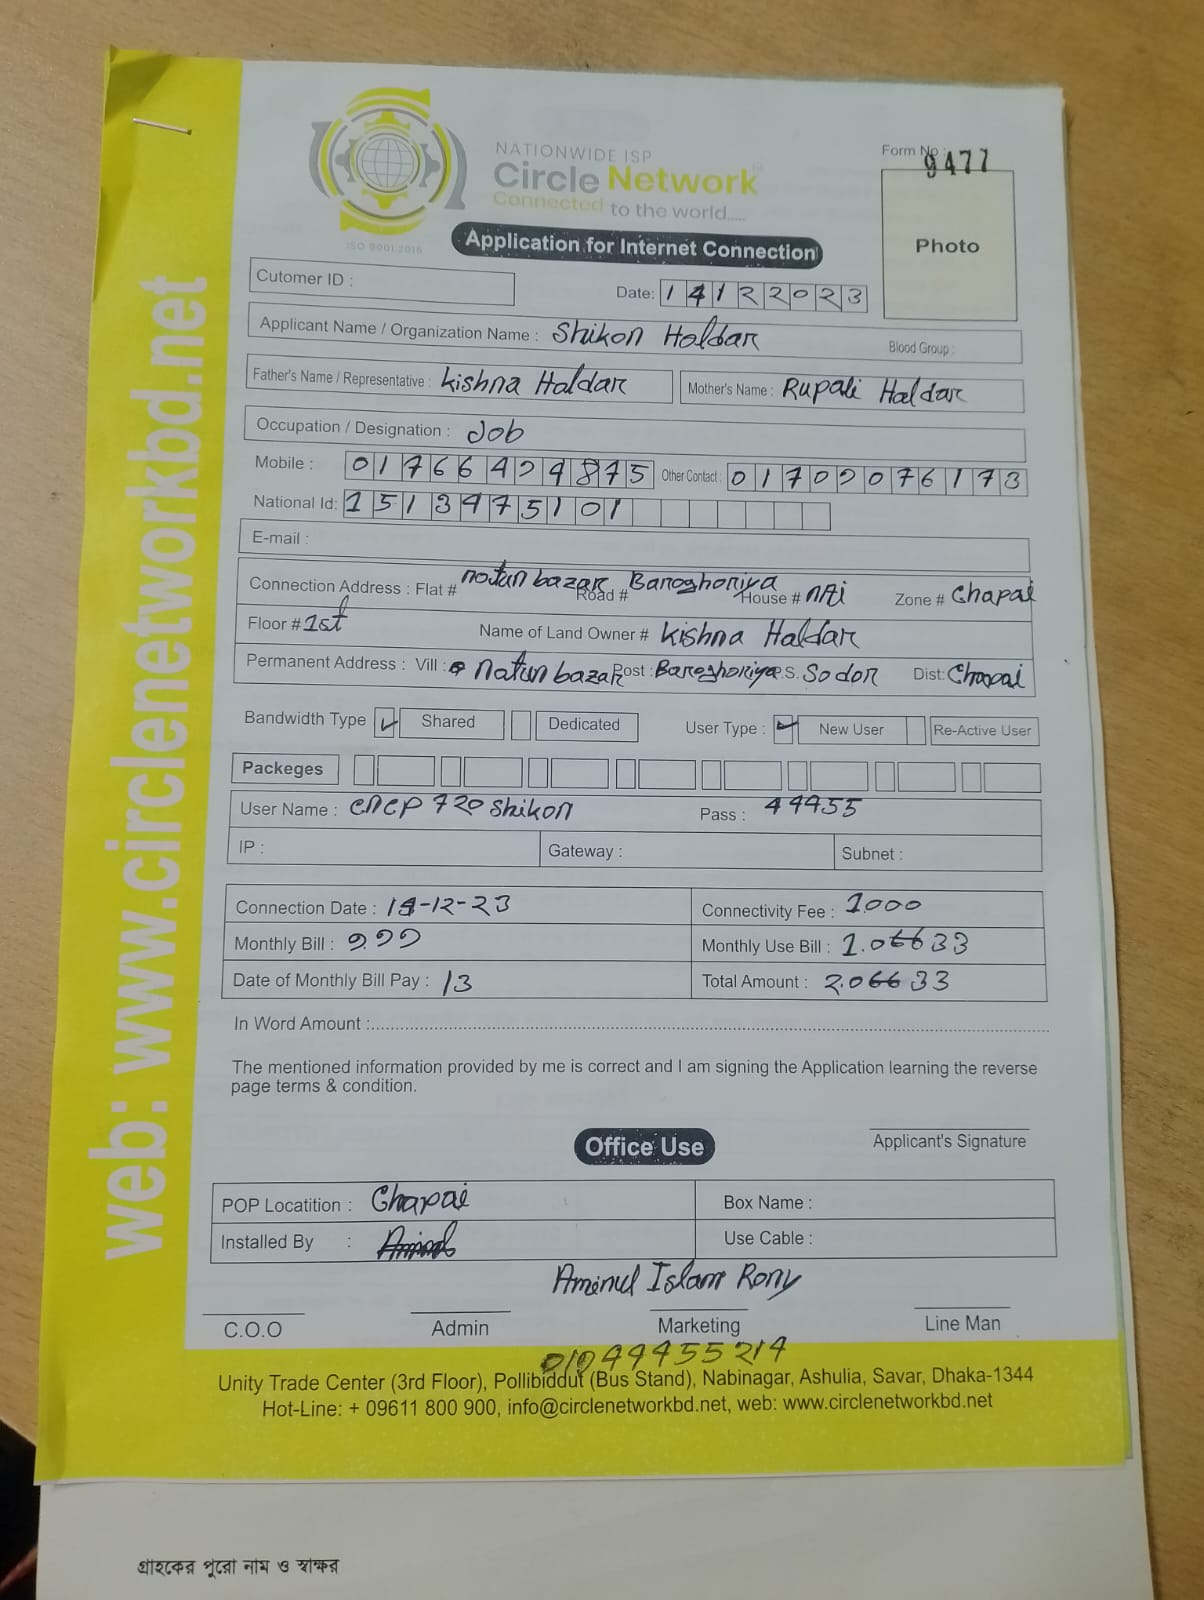 web: www.circlenetworkbd.net
NATIONWIDE ISP
Circle Network
Connected to the world.....
ISO 9001:2015
Form No : 9477
Photo
Application for Internet Connection
Cutomer ID :
Date: 14122023
Applicant Name / Organization Name : Shikon Haldar
Blood Group :
Father's Name / Representative : Kishna Haldar
Mother's Name : Rupali Haldar
Occupation / Designation : Job
Mobile : 01766429875 Other Contact : 01709076173
National Id: 1513475101
E-mail :
Connection Address : Flat # notun bazar Road # Baroghoriya House # Zone # Chapai
Floor # 1st Name of Land Owner # Kishna Haldar
Permanent Address : Vill : Natun bazar Post : Baroghoriya P.S. Sodor Dist: Chapai
Bandwidth Type Shared Dedicated User Type : New User Re-Active User
Packeges
User Name : CNCP 720 Shikon Pass : 44455
IP : Gateway : Subnet :
Connection Date : 14-12-23 Connectivity Fee : 1000
Monthly Bill : 999 Monthly Use Bill : 1.0 33
Date of Monthly Bill Pay : 13 Total Amount : 2.0 33
In Word Amount :
The mentioned information provided by me is correct and I am signing the Application learning the reverse
page terms & condition.
Applicant's Signature
Office Use
POP Locatition : Chapai Box Name :
Installed By : Use Cable :
Aminul Islam Rony
C.O.O Admin Marketing Line Man
Unity Trade Center (3rd Floor), Pollibiddut (Bus Stand), Nabinagar, Ashulia, Savar, Dhaka-1344
Hot-Line: + 09611 800 900, info@circlenetworkbd.net, web: www.circlenetworkbd.net
গ্রাহকের পুরো নাম ও স্বাক্ষর